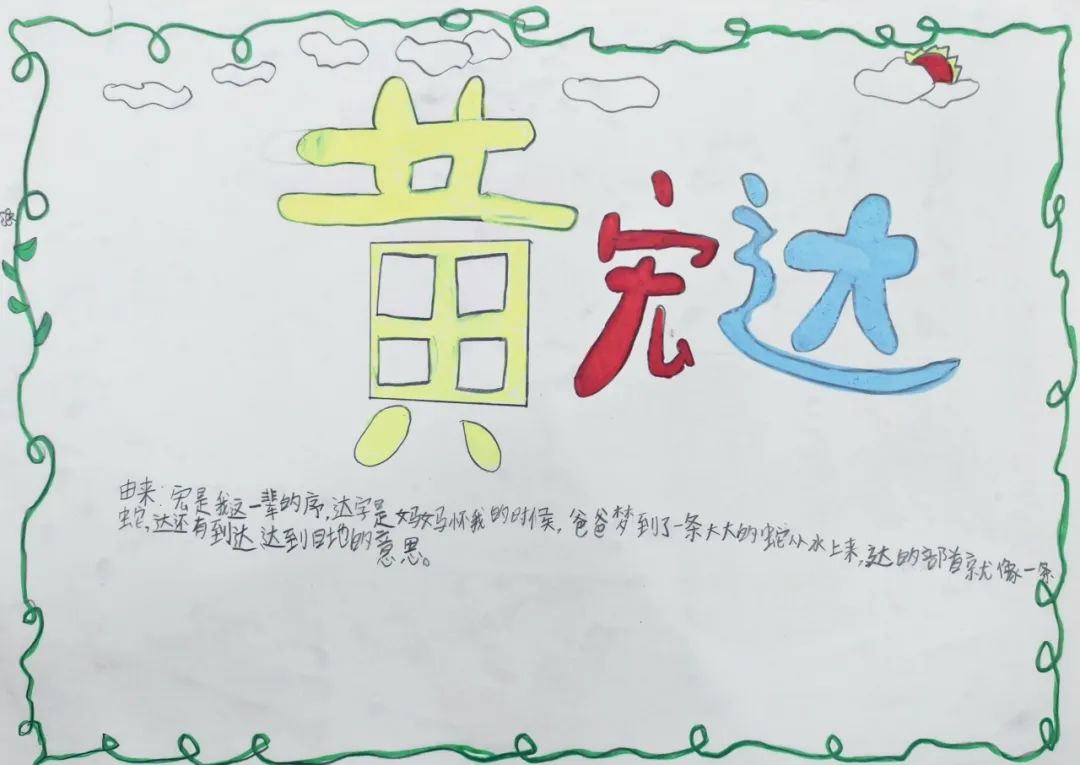 黄宏达
由来:宏是我这一辈的序,达字是妈妈怀我的时候,爸爸梦到了一条大大的蛇从水上来,达的部首就像一条
蛇,达还有到达 达到目地的意思。